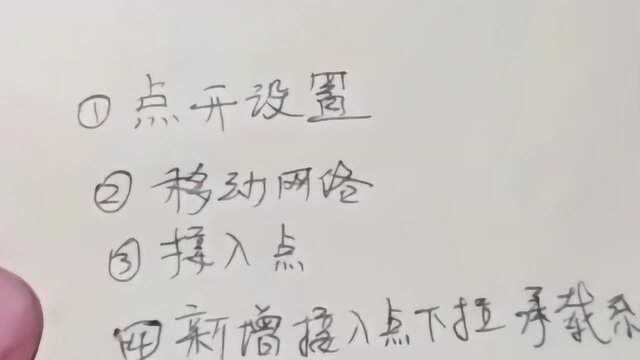 ①点开设置
②移动网络
③接入点
④新增接入点下拉承载系